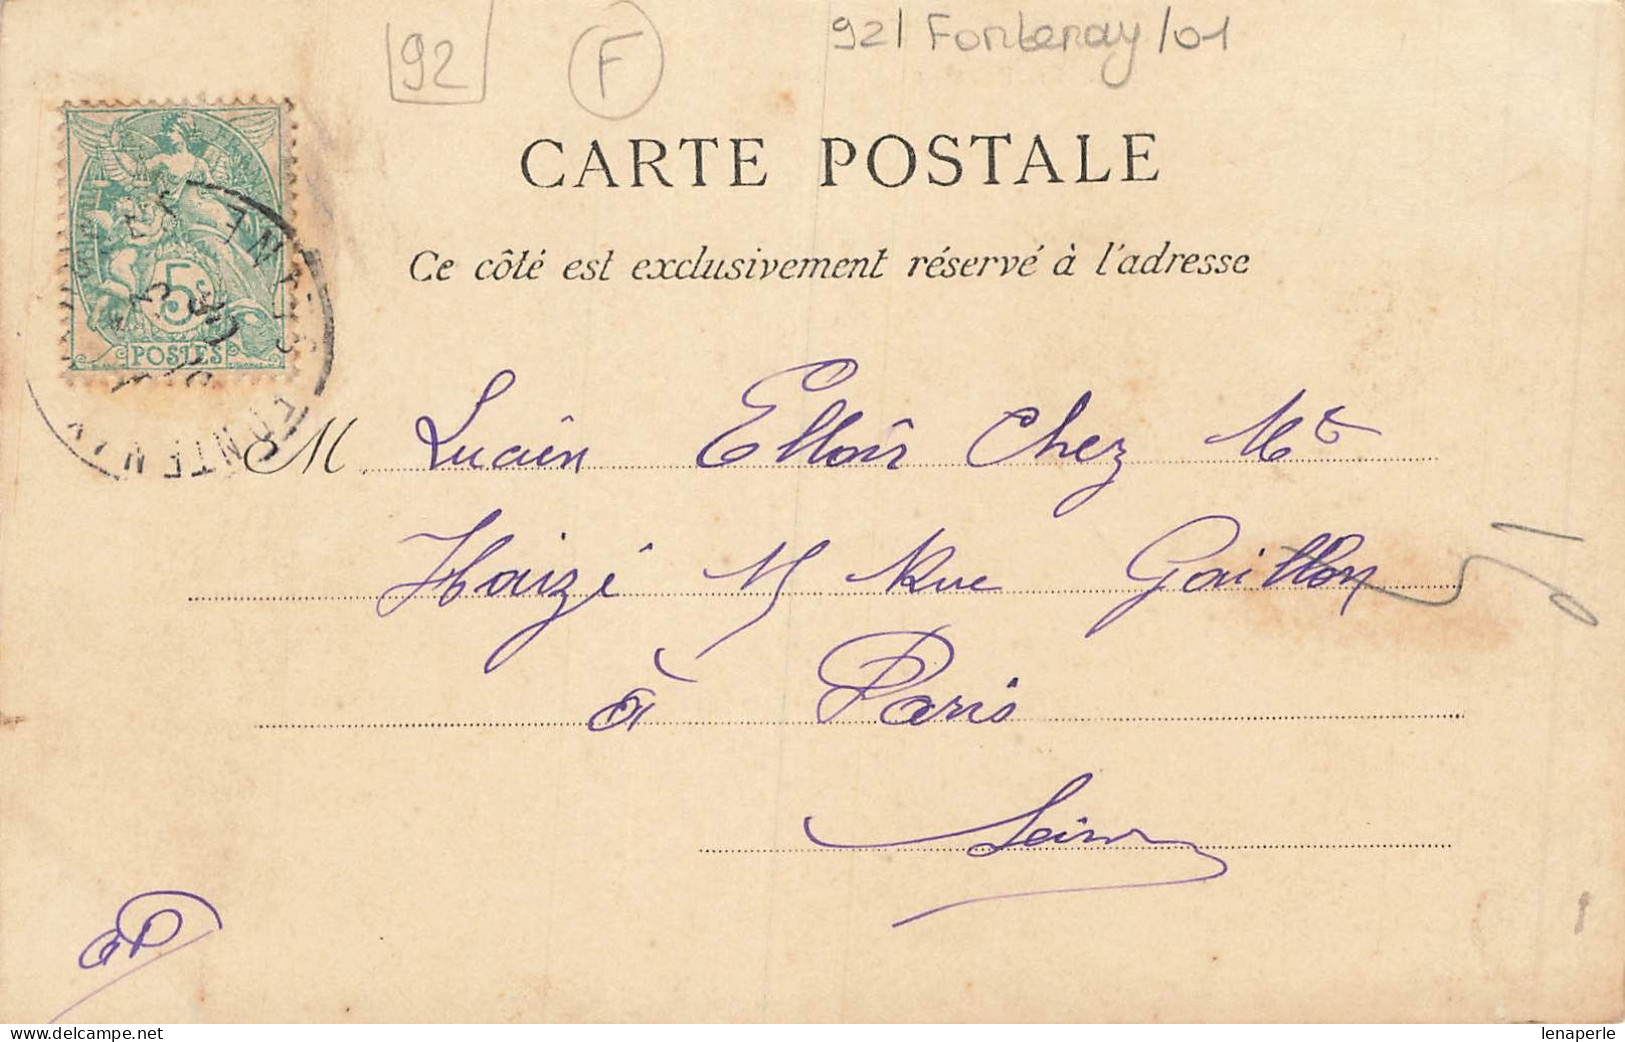 92
F
92/ Fontenay /01
5c
POSTES
FONTENAY
SEINE
CARTE POSTALE
Ce côté est exclusivement réservé à l'adresse
M. Lucien Chez
Rue Gaillon
à Paris
Seine
www.delcampe.net
lenaperle